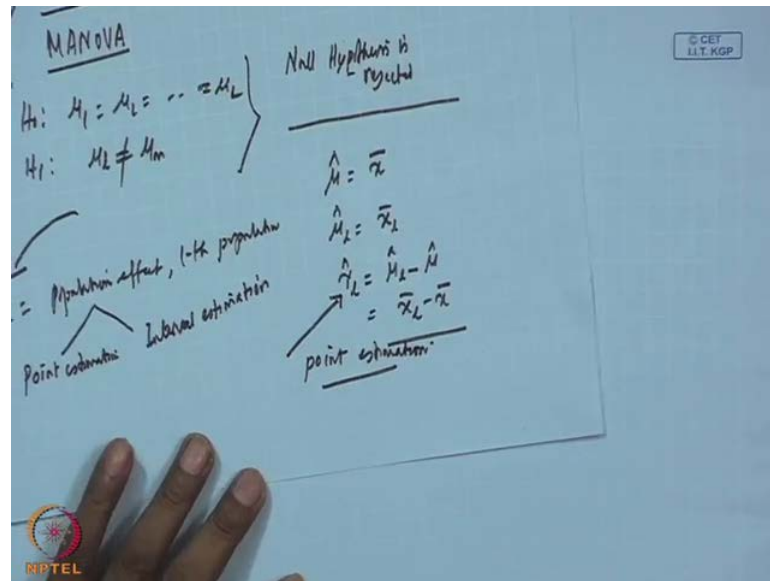 MANOVA
H0: μ1 = μ2 = ·· = μL
H1: μl ≠ μm
Null Hypothesis is
rejected
μ̂ = x̄
μ̂l = x̄l
τ̂l = μ̂l - μ̂
= x̄l - x̄
point estimation
= Population effect, l-th population
Point estimation
Interval estimation
© CET
I.I.T. KGP
NPTEL